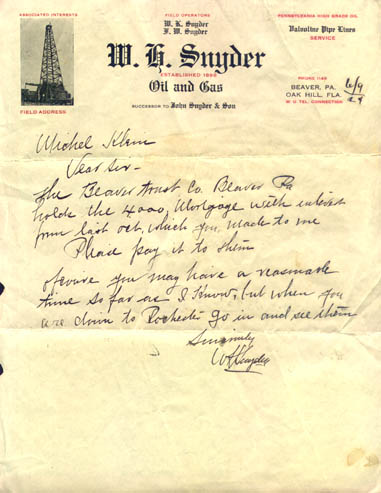 ASSOCIATED INTERESTS
FIELD ADDRESS
FIELD OPERATORS
W. K. Snyder
J. W. Snyder
PENNSYLVANIA HIGH GRADE OIL
Valvoline Pipe Lines
SERVICE
W. H. Snyder
ESTABLISHED 1896
Oil and Gas
SUCCESSOR TO John Snyder & Son
PHONE 1149
BEAVER, PA.
OAK HILL, FLA.
W. U. TEL. CONNECTION
6/9
29
Michel Klein
Dear Sir -
The Beaver Trust Co. Beaver Pa
holds the 4000, Mortgage with interest
from last Oct. which you made to me
Please pay it to them
of course you may have a reasonable
time so far as I know, but when you
are down to Rochester go in and see them
Sincerely
W H Snyder